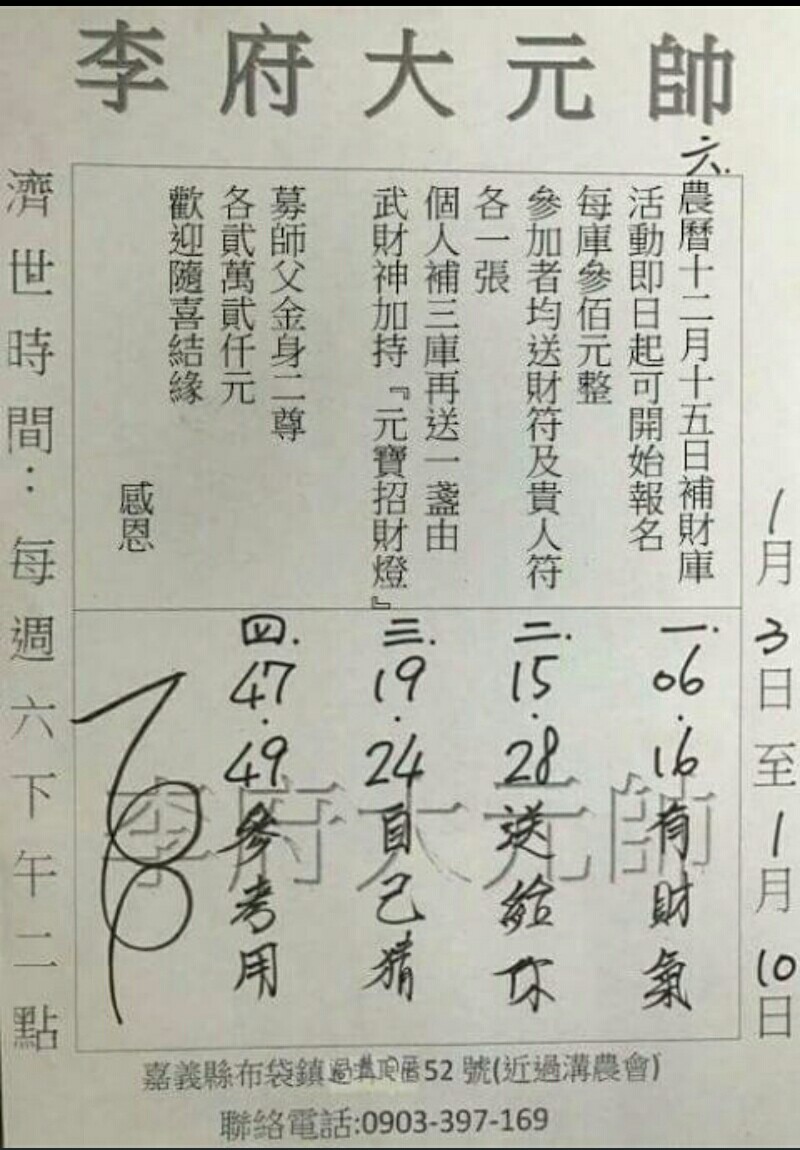 李府大元帥
1月3日至1月10日
六.農曆十二月十五日補財庫
活動即日起可開始報名
每庫參佰元整
參加者均送財符及貴人符
各一張
個人補三庫再送一盞由
武財神加持『元寶招財燈』
募師父金身二尊
各貳萬貳仟元
歡迎隨喜結緣
感恩
一.06.16有財氣
二.15.28送給你
三.19.24自己猜
四.47.49參考用
李府大元帥
濟世時間：每週六下午二點
嘉義縣布袋鎮52號(近過溝農會)
聯絡電話:0903-397-169